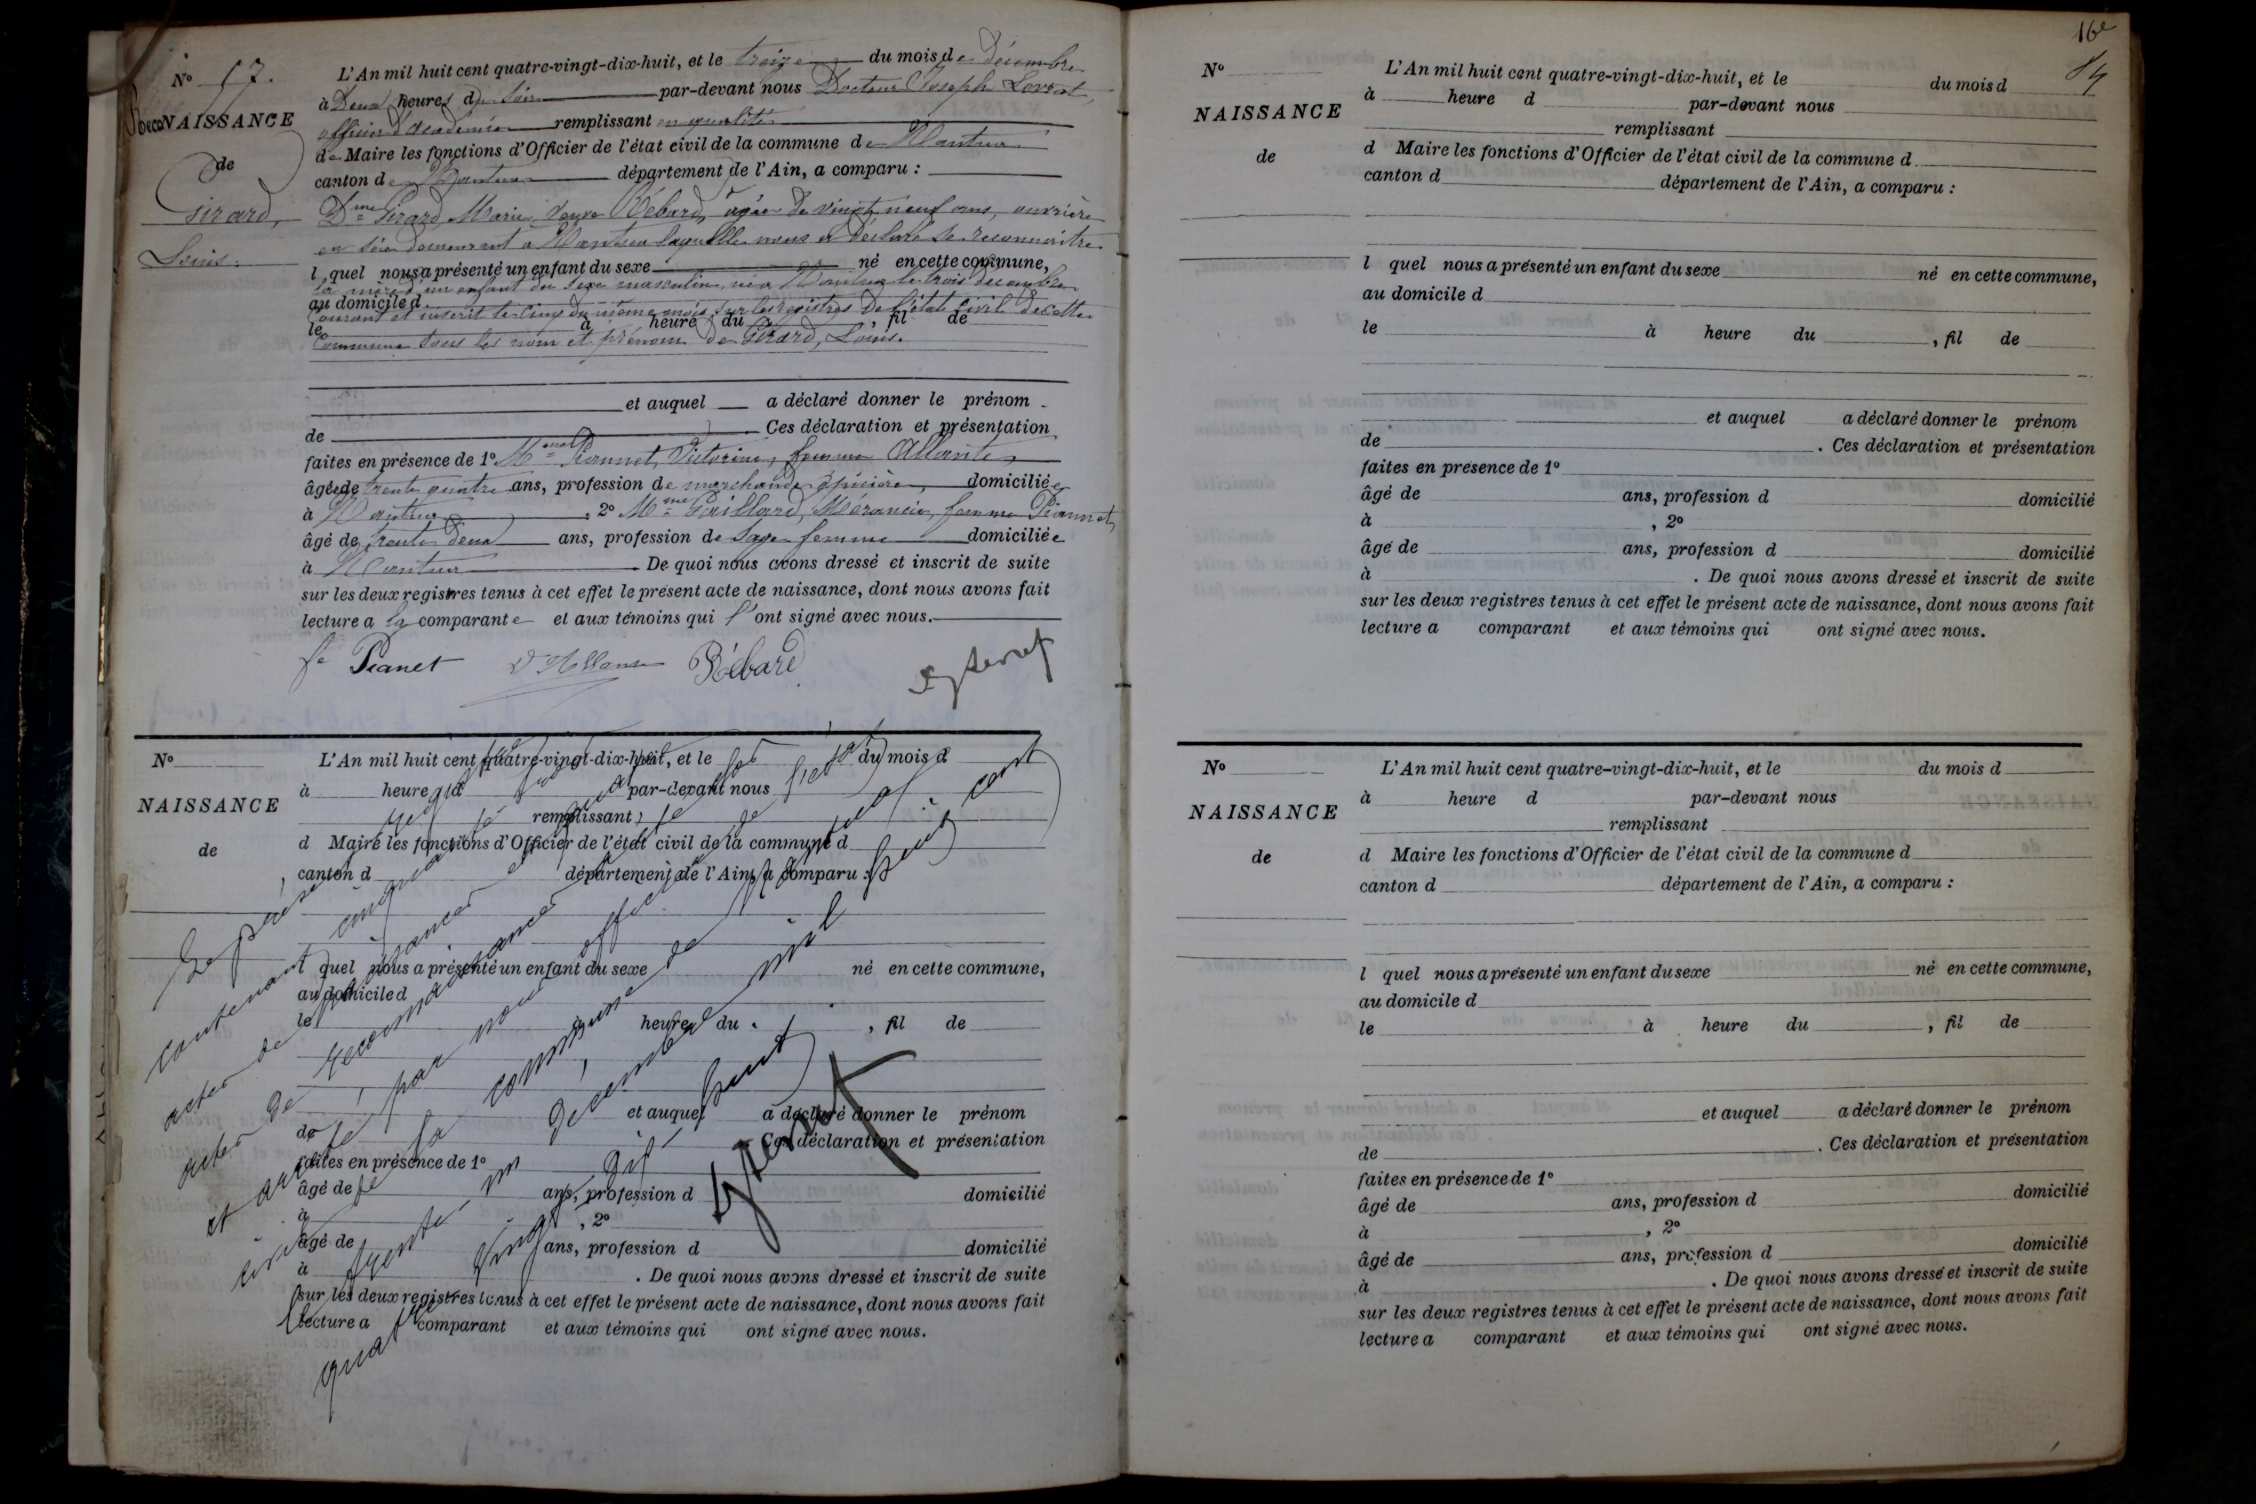 N° 57.
RecoNAISSANCE
de
Girard,
Louis.
L'An mil huit cent quatre-vingt-dix-huit, et le treize du mois de décembre
à Deux heures du soir par-devant nous Docteur Joseph
officier d'académie remplissant en qualité
de Maire les fonctions d'Officier de l'état civil de la commune de Nantua
canton de Nantua département de l'Ain, a comparu :
Dme Girard Marie veuve Rébard, âgée de vingt neuf ans, ouvrière
en soie demeurant à Nantua laquelle nous a déclaré se reconnaître
l quel nous a présenté un enfant du sexe né en cette commune,
la mère d'un enfant du sexe masculin, né à Nantua le trois décembre
au domicile d
courant et inscrit le cinq du même mois sur les registres de l'état civil de cette
le à heure du , fil de
commune sous les nom et prénom de Girard, Louis.
et auquel a déclaré donner le prénom
de Ces déclaration et présentation
faites en présence de 1° Victorine, femme
âgée de trente quatre ans, profession de marchande épicière, domiciliée
à Nantua , 2° Mme Gaillard, femme
âgé de trente deux ans, profession de Sage femme domiciliée
à Nantua De quoi nous avons dressé et inscrit de suite
sur les deux registres tenus à cet effet le présent acte de naissance, dont nous avons fait
lecture a la comparante et aux témoins qui l'ont signé avec nous.
fe Pianet Rébard
N°
NAISSANCE
de
L'An mil huit cent quatre-vingt-dix-huit, et le du mois d
à heure d par-devant nous
remplissant
d Maire les fonctions d'Officier de l'état civil de la commune d
canton d département de l'Ain, a comparu :
l quel nous a présenté un enfant du sexe né en cette commune,
au domicile d
le à heure du , fil de
et auquel a déclaré donner le prénom
de Ces déclaration et présentation
faites en présence de 1°
âgé de ans, profession d domicilié
à , 2°
âgé de ans, profession d domicilié
à . De quoi nous avons dressé et inscrit de suite
sur les deux registres tenus à cet effet le présent acte de naissance, dont nous avons fait
lecture a comparant et aux témoins qui ont signé avec nous.
Le présent
contenant cinquante
actes de naissances et quatre
actes de reconnaissance
et arrêté par nous officier de l'état
civil de la commune de Nantua
trente-un décembre mil huit cent
quatre vingt dix-huit
16e
N°
NAISSANCE
de
L'An mil huit cent quatre-vingt-dix-huit, et le du mois d
à heure d par-devant nous
remplissant
d Maire les fonctions d'Officier de l'état civil de la commune d
canton d département de l'Ain, a comparu :
l quel nous a présenté un enfant du sexe né en cette commune,
au domicile d
le à heure du , fil de
et auquel a déclaré donner le prénom
de . Ces déclaration et présentation
faites en présence de 1°
âgé de ans, profession d domicilié
à , 2°
âgé de ans, profession d domicilié
à . De quoi nous avons dressé et inscrit de suite
sur les deux registres tenus à cet effet le présent acte de naissance, dont nous avons fait
lecture a comparant et aux témoins qui ont signé avec nous.
N°
NAISSANCE
de
L'An mil huit cent quatre-vingt-dix-huit, et le du mois d
à heure d par-devant nous
remplissant
d Maire les fonctions d'Officier de l'état civil de la commune d
canton d département de l'Ain, a comparu :
l quel nous a présenté un enfant du sexe né en cette commune,
au domicile d
le à heure du , fil de
et auquel a déclaré donner le prénom
de . Ces déclaration et présentation
faites en présence de 1°
âgé de ans, profession d domicilié
à , 2°
âgé de ans, profession d domicilié
à . De quoi nous avons dressé et inscrit de suite
sur les deux registres tenus à cet effet le présent acte de naissance, dont nous avons fait
lecture a comparant et aux témoins qui ont signé avec nous.